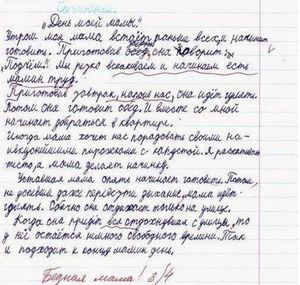 Сочинение
„День моей мамы"
Утром моя мама встаёт раньше всех и начинает
готовить. Приготовив обед, она говорит:
„Подъём". Мы резко вскакиваем и начинаем есть
мамин труд.
Приготовив завтрак, напоив нас, она идёт гулять.
Потом она готовит обед. И вместе со мной
начинает убираться в квартире.
Иногда мама хочет нас порадовать своими на-
ивкуснейшими пирожками с капустой. Я раскатываю
тесто, а мама делает начинку.
Уставшая мама опять начинает готовить. Потом,
не успевши даже перевести дыхание, мама идёт
гулять. Обычно она отдыхает только на улице.
Когда она придёт вся отдохнувшая с улицы, то
у неё остаётся немного свободного времени. Так
и подходит к концу мамин день.
Бедная мама! 3/4